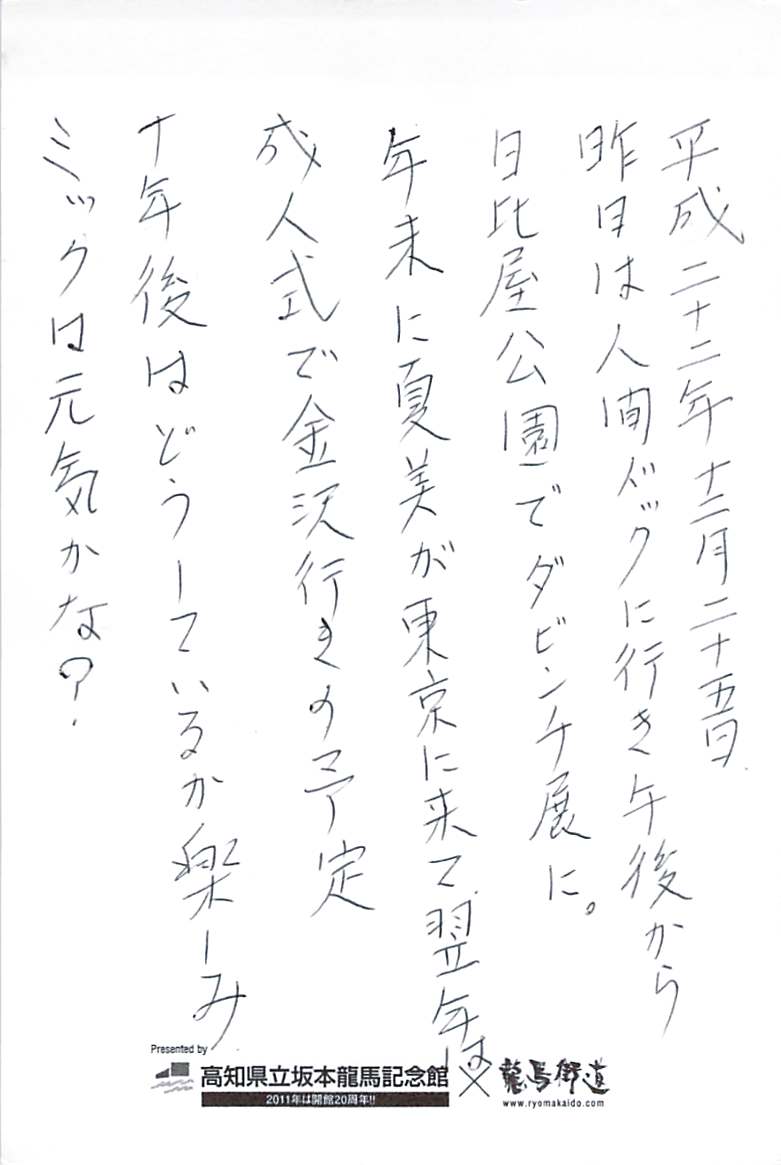 平成二十二年十二月二十五日
昨日は人間ドックに行き午後から
日比屋公園でダビンチ展に。
年末に夏美が東京に来て翌年は
成人式で金沢行きの予定
十年後はどうしているか楽しみ
ミックは元気かな?
Presented by
高知県立坂本龍馬記念館
2011年は開館20周年!!
×
龍馬街道
www.ryomakaido.com